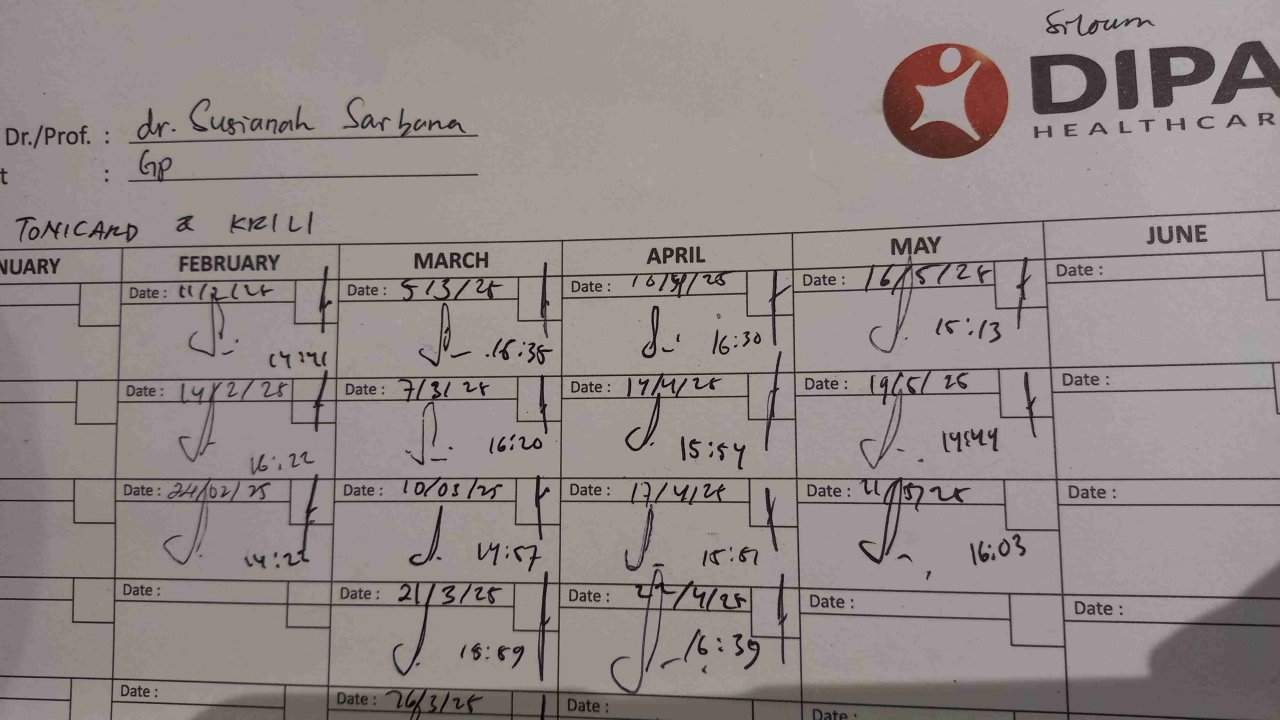 Siloum
DIPA
HEALTHCAR
Dr./Prof. : dr. Susianah Sarbana
t : Gp
TONICARD & KRILI
NUARY FEBRUARY MARCH APRIL MAY JUNE
Date : 11/2/25 Date : 5/3/25 Date : Date : 16/5/25 Date :
14:41 15:35 16:30 15:13
Date : 14/2/25 Date : 7/3/25 Date : 14/4/25 Date : 19/5/25 Date :
16:22 16:20 15:54 14:44
Date : 24/02/25 Date : 10/03/25 Date : 17/4/25 Date : 21/5/25 Date :
14:22 14:57 15:51 16:03
Date : Date : 21/3/25 Date : 22/4/25 Date : Date :
15:59 16:39
Date : Date : 26/3/25 Date : Date :